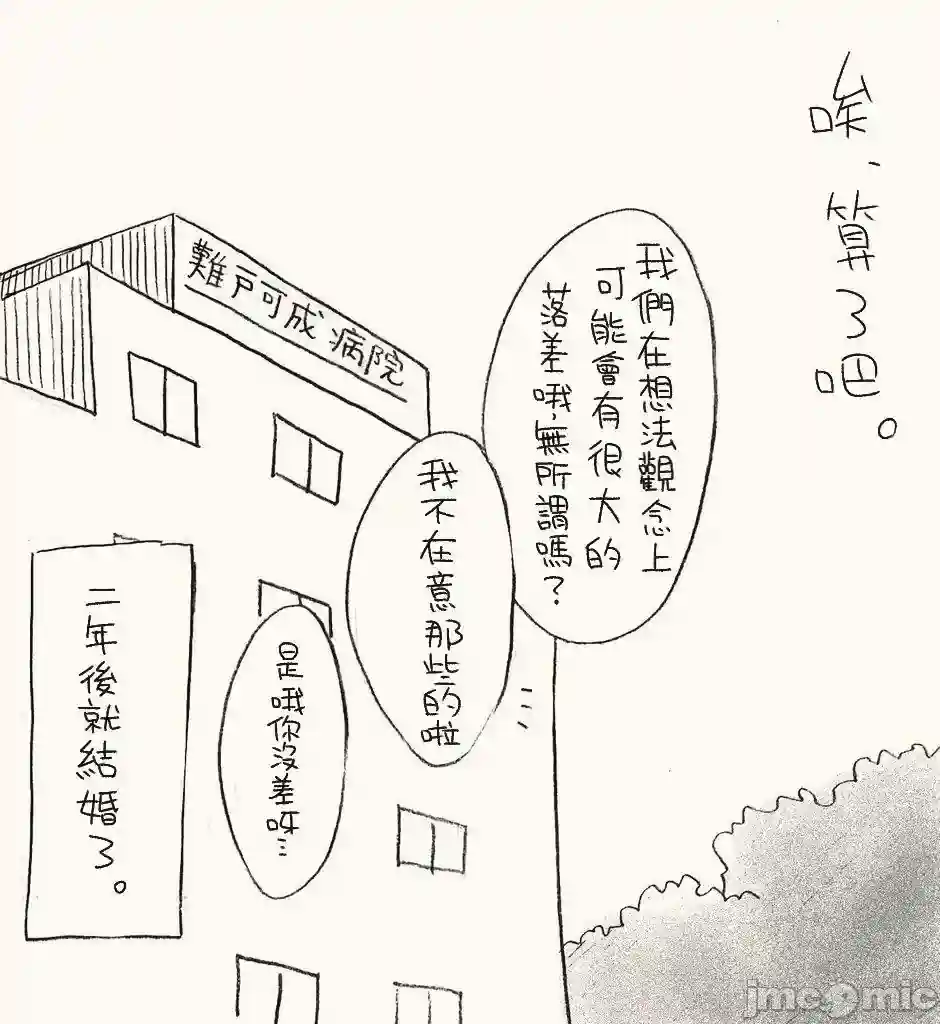 唉、算了吧。
我們在想法觀念上
可能會有很大的
落差哦、無所謂嗎？
難戸可成病院
我不在意那些的啦
是哦你沒差呀…
二年後就結婚了。
jmc♥mic